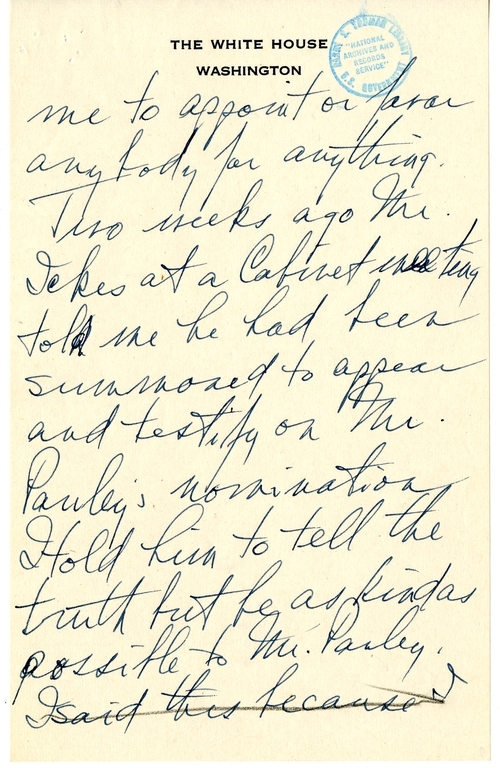 THE WHITE HOUSE
WASHINGTON
HARRY S. TRUMAN LIBRARY
"NATIONAL
ARCHIVES AND
RECORDS
SERVICE"
U.S. GOVERNMENT
me to appoint or favor
anybody for anything.
Two weeks ago Mr.
Ickes at a Cabinet meeting
told me he had been
summoned to appear
and testify on Mr.
Pauley's nomination
I told him to tell the
truth but be as kind as
possible to Mr. Pauley.
I said this because I